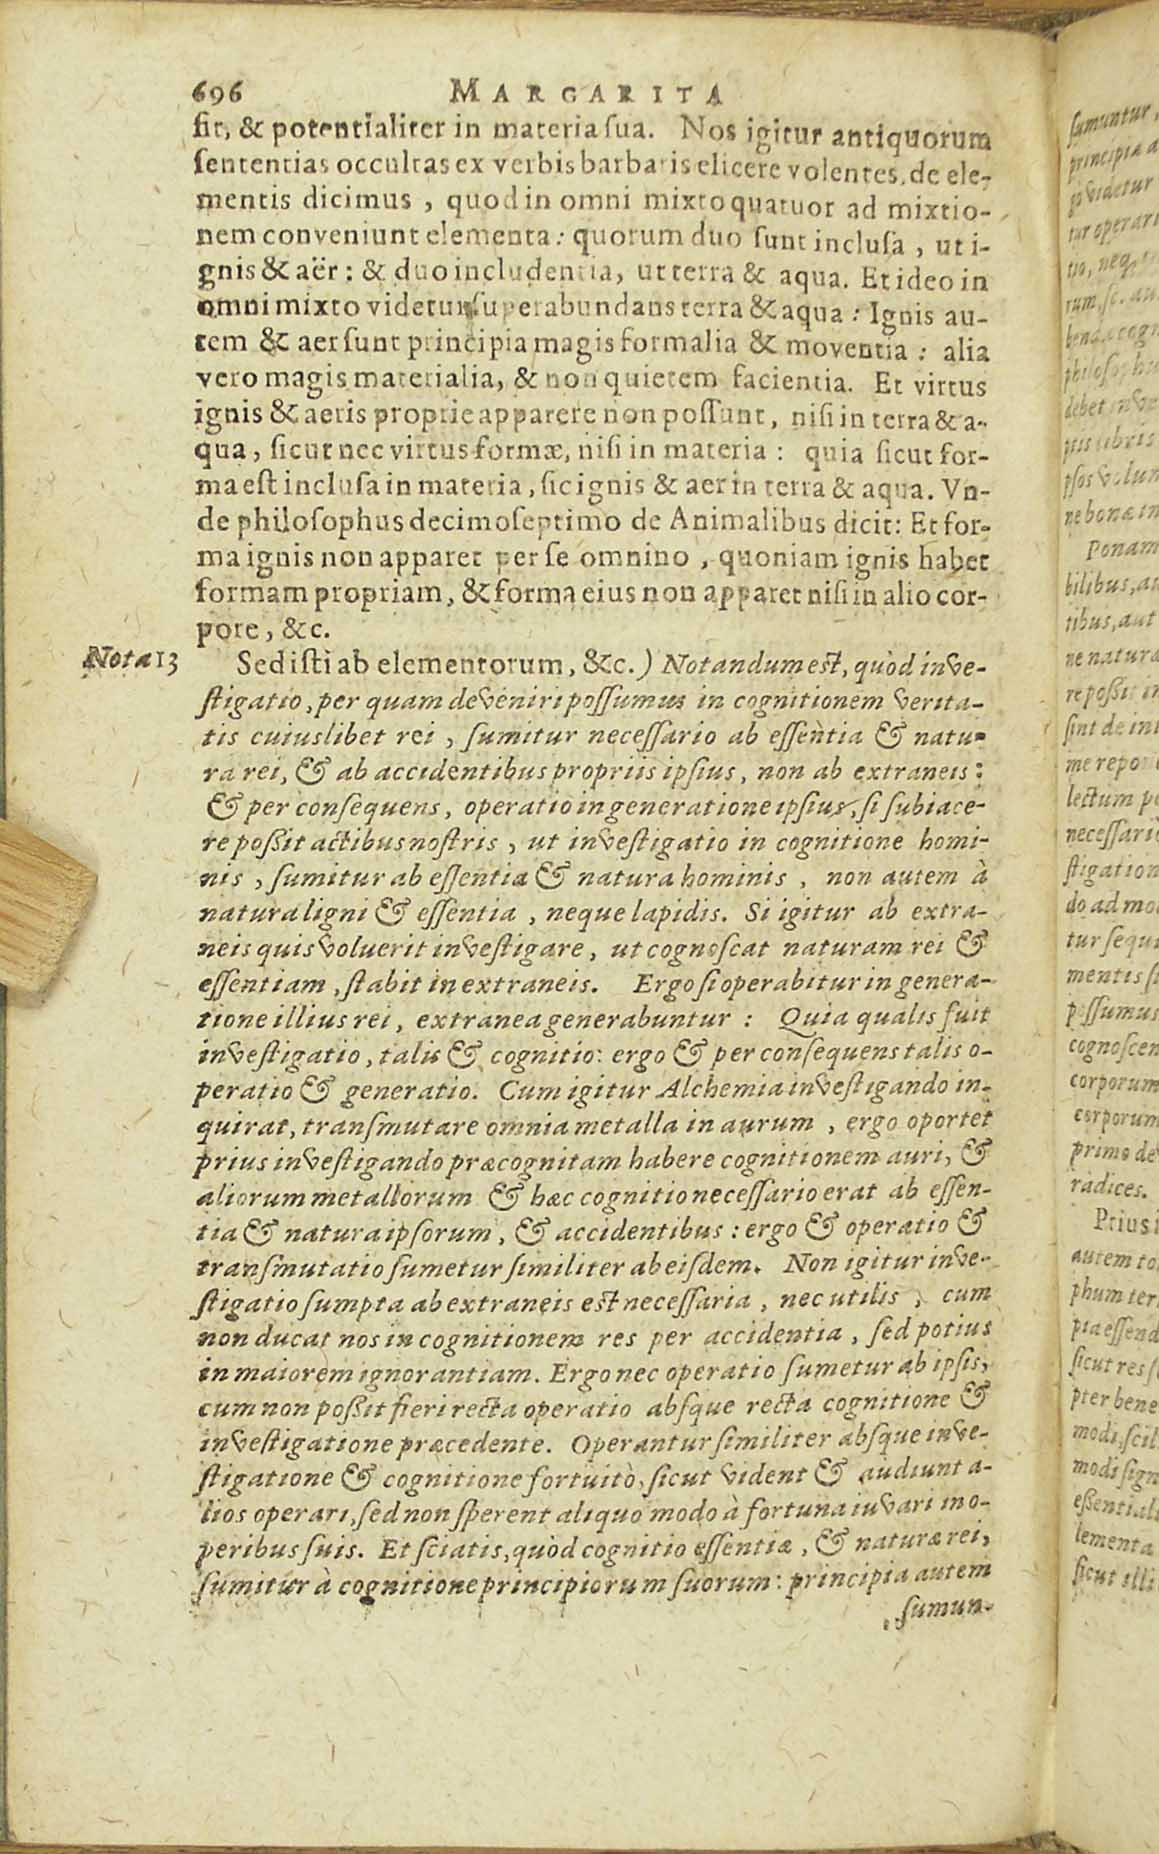 696 MARGARITA
sit, & potentialiter in materia sua. Nos igitur antiquorum
sententias occultas ex verbis barbaris elicere volentes, de ele-
mentis dicimus, quod in omni mixto quatuor ad mixtio-
nem conveniunt elementa: quorum duo sunt inclusa, ut i-
gnis & aër: & duo includentia, ut terra & aqua. Et ideo in
omni mixto videtur superabundans terra & aqua: Ignis au-
tem & aer sunt principia magis formalia & moventia: alia
vero magis materialia, & non quietem facientia. Et virtus
ignis & aeris proprie apparere non possunt, nisi in terra & a-
qua, sicut nec virtus formæ, nisi in materia: quia sicut for-
ma est inclusa in materia, sic ignis & aer in terra & aqua. Vn-
de philosophus decimoseptimo de Animalibus dicit: Et for-
ma ignis non apparet per se omnino, quoniam ignis habet
formam propriam, & forma eius non apparet nisi in alio cor-
pore, &c.
Nota 13 Sed isti ab elementorum, &c.) Notandum est, quòd inve-
stigatio, per quam deveniri possumus in cognitionem verita-
tis cuiuslibet rei, sumitur necessario ab essentia & natu-
ra rei, & ab accidentibus propriis ipsius, non ab extraneis:
& per consequens, operatio in generatione ipsius, si subiace-
re possit actibus nostris, ut investigatio in cognitione homi-
nis, sumitur ab essentia & natura hominis, non autem à
natura ligni & essentia, neque lapidis. Si igitur ab extra-
neis quis voluerit investigare, ut cognoscat naturam rei &
essentiam, stabit in extraneis. Ergo si operabitur in genera-
tione illius rei, extranea generabuntur: Quia qualis fuit
investigatio, talis & cognitio: ergo & per consequens talis o-
peratio & generatio. Cum igitur Alchemia investigando in-
quirat, transmutare omnia metalla in aurum, ergo oportet
prius investigando præcognitam habere cognitionem auri, &
aliorum metallorum & hæc cognitio necessario erat ab essen-
tia & natura ipsorum, & accidentibus: ergo & operatio &
transmutatio sumetur similiter ab eisdem. Non igitur inve-
stigatio sumpta ab extraneis est necessaria, nec utilis, cum
non ducat nos in cognitionem res per accidentia, sed potius
in maiorem ignorantiam. Ergo nec operatio sumetur ab ipsis,
cum non possit fieri recta operatio absque recta cognitione &
investigatione præcedente. Operantur similiter absque inve-
stigatione & cognitione fortuitò, sicut vident & audiunt a-
lios operari, sed non sperent aliquo modo à fortuna iuvari in o-
peribus suis. Et sciatis, quòd cognitio essentiæ, & naturæ rei,
sumitur à cognitione principiorum suorum: principia autem
sumun-
sumuntur,
principia a
go videtur
tur operari
tio, neq,
rum, sc. au
philosophu
ptis libris
ne bonæ in
Ponam
bilibus, au
tibus, aut
ne natura
re possit in
sint de in
me repo
lectum p
necessari
stigation
do ad mo
tur sequi
mentis si
possumus
cognoscen
corporum
corporum
primo de
radices.
Prius i
autem to
phum ter
pia essend
sicut res s
pter bene
modi, scil
modi sign
essentiali
lementa
sicut illi